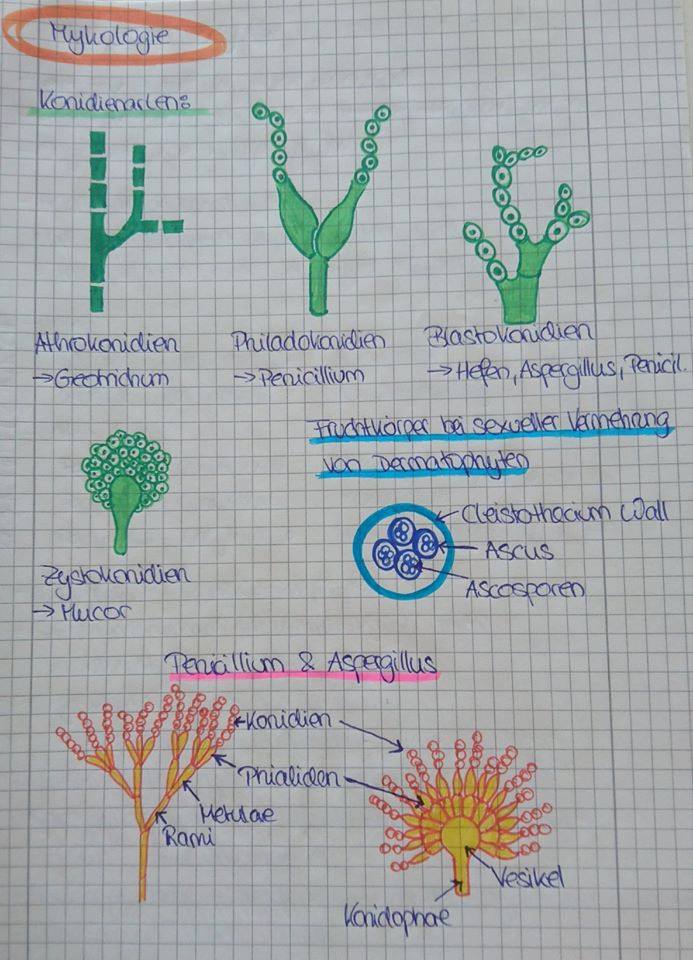 Mykologie
Konidienarten:
Athrokonidien
→ Geotrichum
Philadokonidien
→ Penicillium
Blastokonidien
→ Hefen, Aspergillus, Penicil.
Zystokonidien
→ Mucor
Fruchtkörper bei sexueller Vermehrung
von Dermatophyten
Cleistothecium Wall
Ascus
Ascosporen
Penicillium & Aspergillus
Konidien
Phialiden
Metulae
Rami
Vesikel
Konidophae